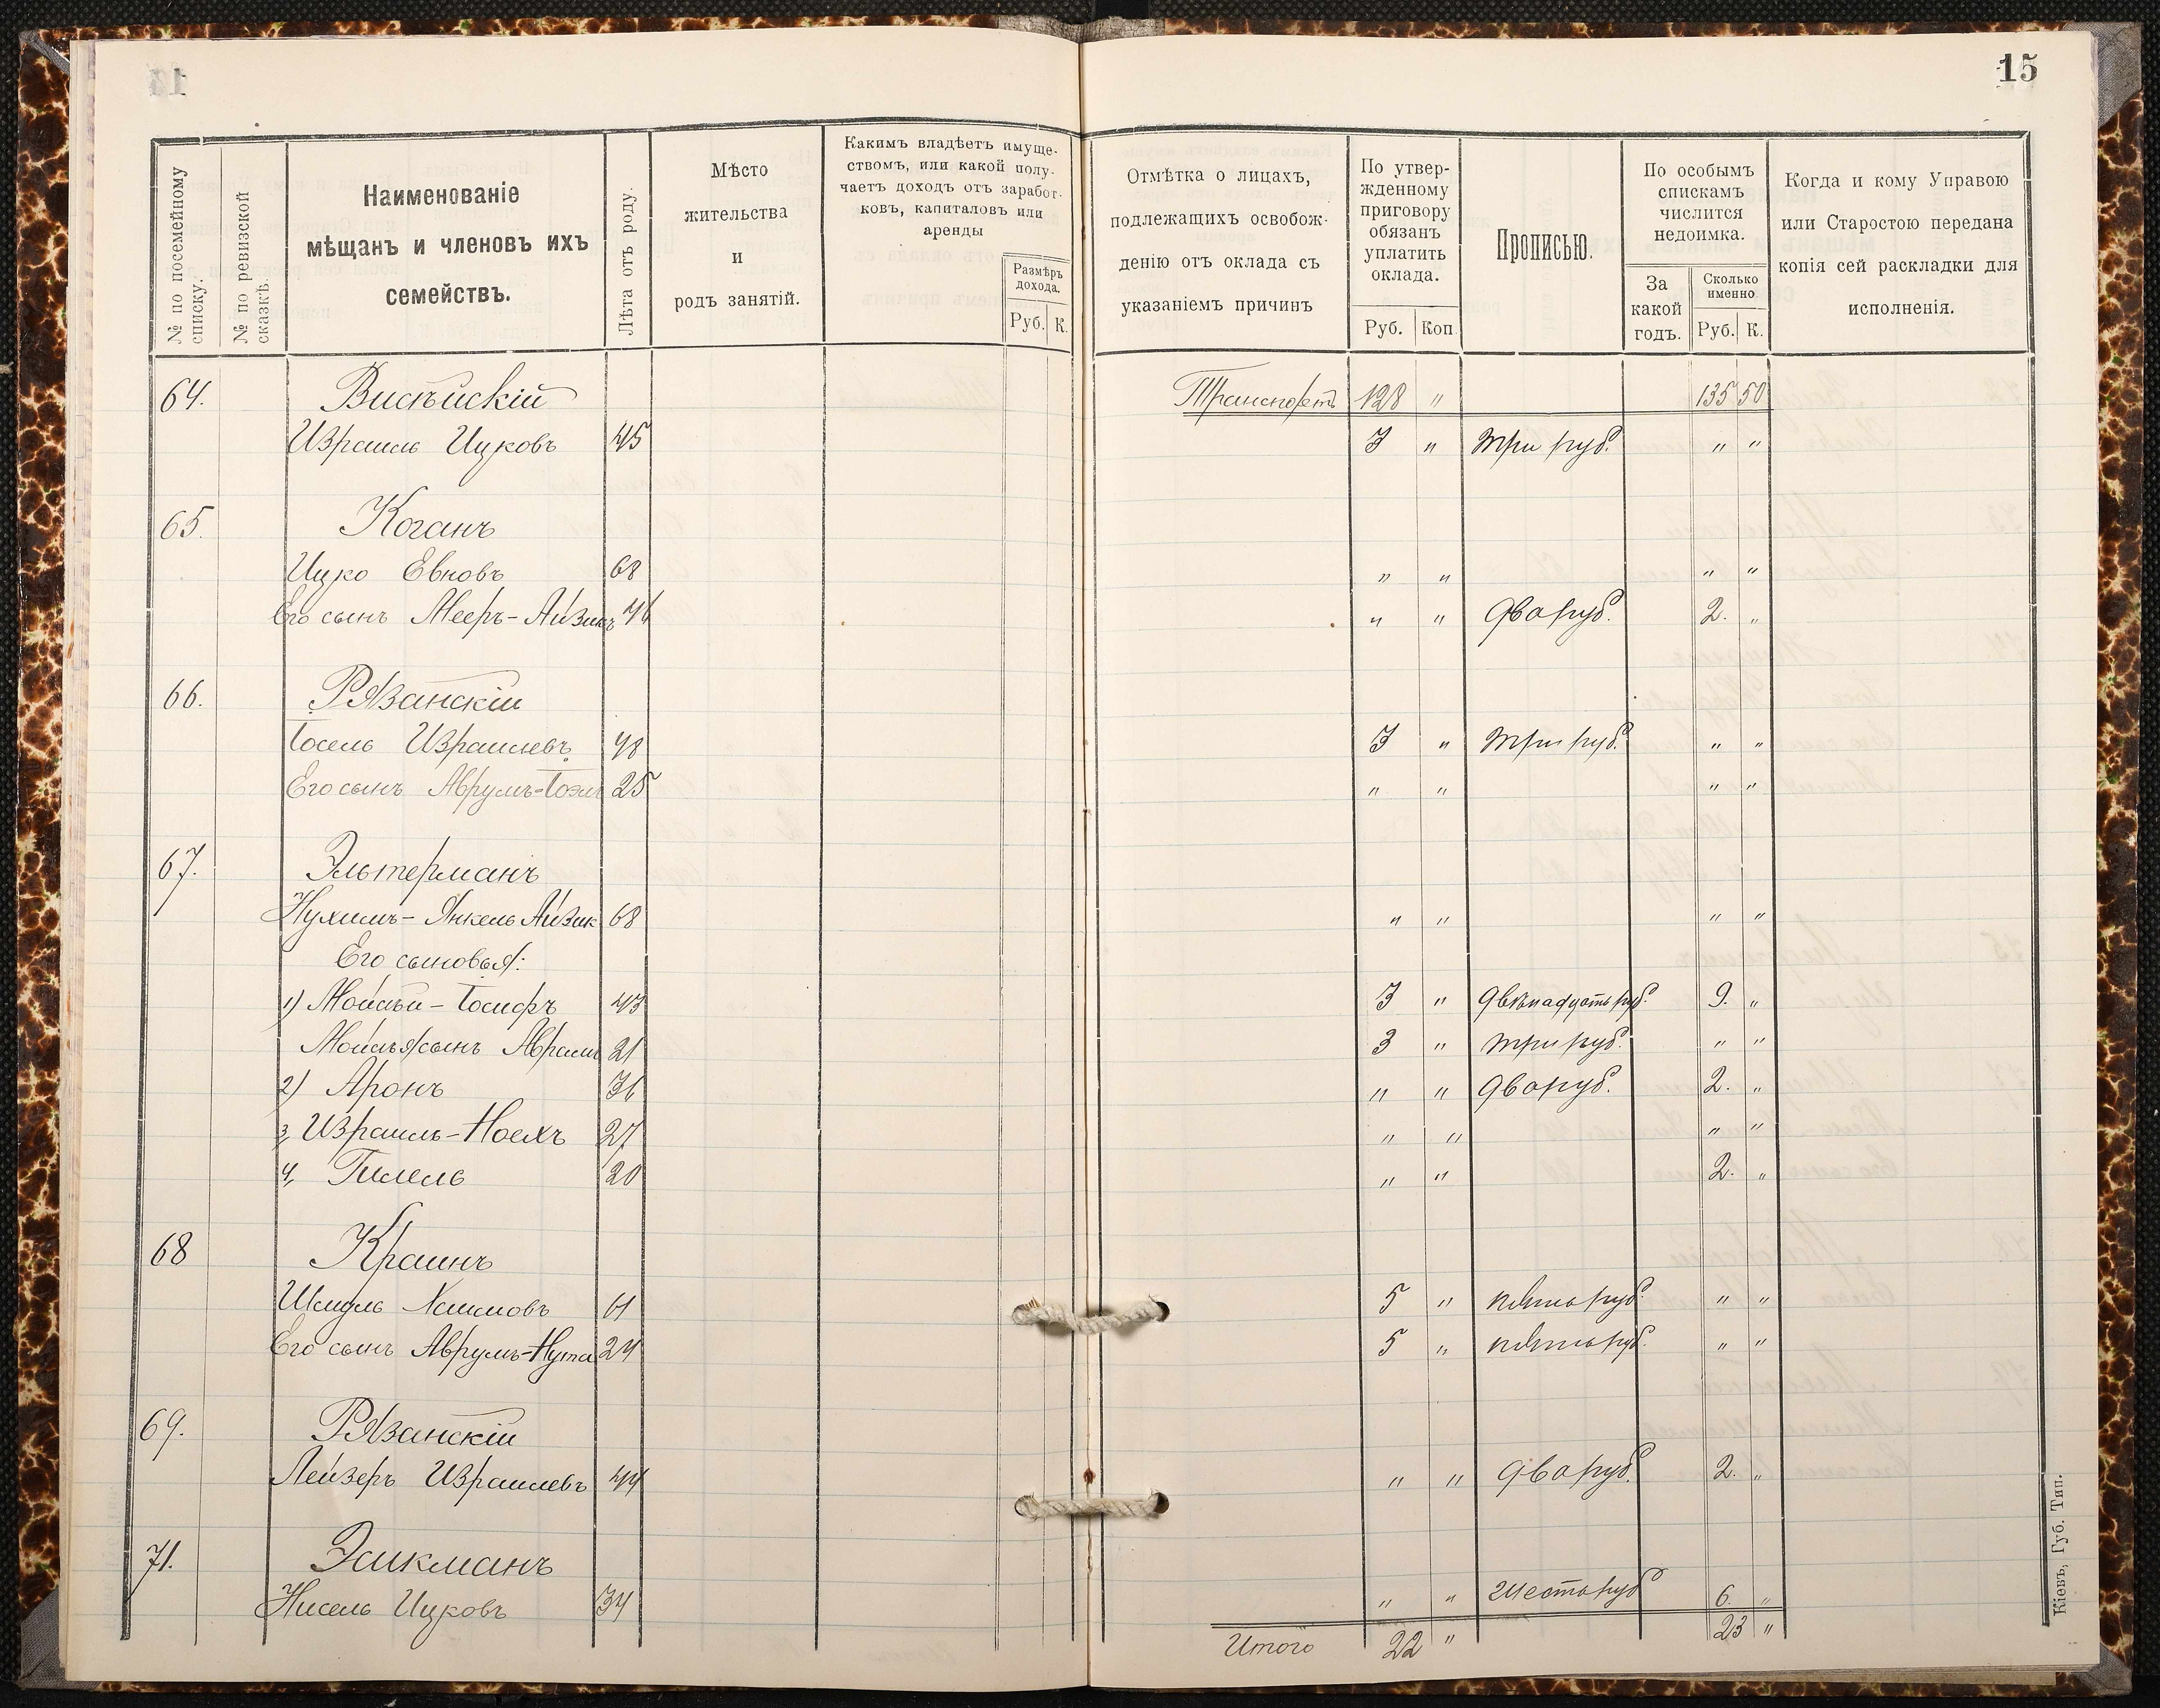 15
№ по посемейному списку.
№ по ревизской сказкѣ.
Наименованіе
мѣщанъ и членовъ ихъ
семействъ.
Лѣта отъ роду.
Мѣсто
жительства
и
родъ занятій.
Какимъ владѣетъ имуще-
ствомъ, или какой полу-
чаетъ доходъ отъ заработ-
ковъ, капиталовъ или
аренды
Размѣръ
дохода.
Руб. К.
Отмѣтка о лицахъ,
подлежащихъ освобож-
денію отъ оклада съ
указаніемъ причинъ
По утвер-
жденному
приговору
обязанъ
уплатить
оклада.
Руб. Коп
Прописью.
По особымъ
спискамъ
числится
недоимка.
За
какой
годъ.
Сколько
именно
Руб. К.
Когда и кому Управою
или Старостою передана
копія сей раскладки для
исполненія.
64. Транспортъ 128 " 135 50
Израиль Ицковъ 45 3 " три руб. " "
65. Коганъ
Ицко Евновъ 68 " " " "
Его сынъ Мееръ-Айзикъ 46 " " два руб. 2. "
66. Рязанскій
Іосель Израилевъ 48 3 " три руб. " "
Его сынъ Аврумъ-Іоэль 25 " " " "
67. Эльтерманъ
Нухимъ-Янкель Айзик 68 " " " "
Его сыновья:
1) Мойсѣй-Іосифъ 43 3 " двѣнадцать руб. 9. "
Мойсѣя сынъ Абрамъ 21 3 " три руб. " "
2) Аронъ 36 " " два руб. 2. "
3, Израиль-Ноехъ 27 " " " "
4, Гилель 20 " " 2. "
68 Краинъ
Шмуль Хаимовъ 61 5 " пять руб. " "
Его сынъ Аврумъ-Нута 24 5 " пять руб. " "
69. Рязанскій
Лейзеръ Израилевъ 44 " " два руб. 2. "
71.
Нисель Ицковъ 34 " " шесть руб 6. "
Итого 22 " 23 "
Кіевъ, Губ. Тип.